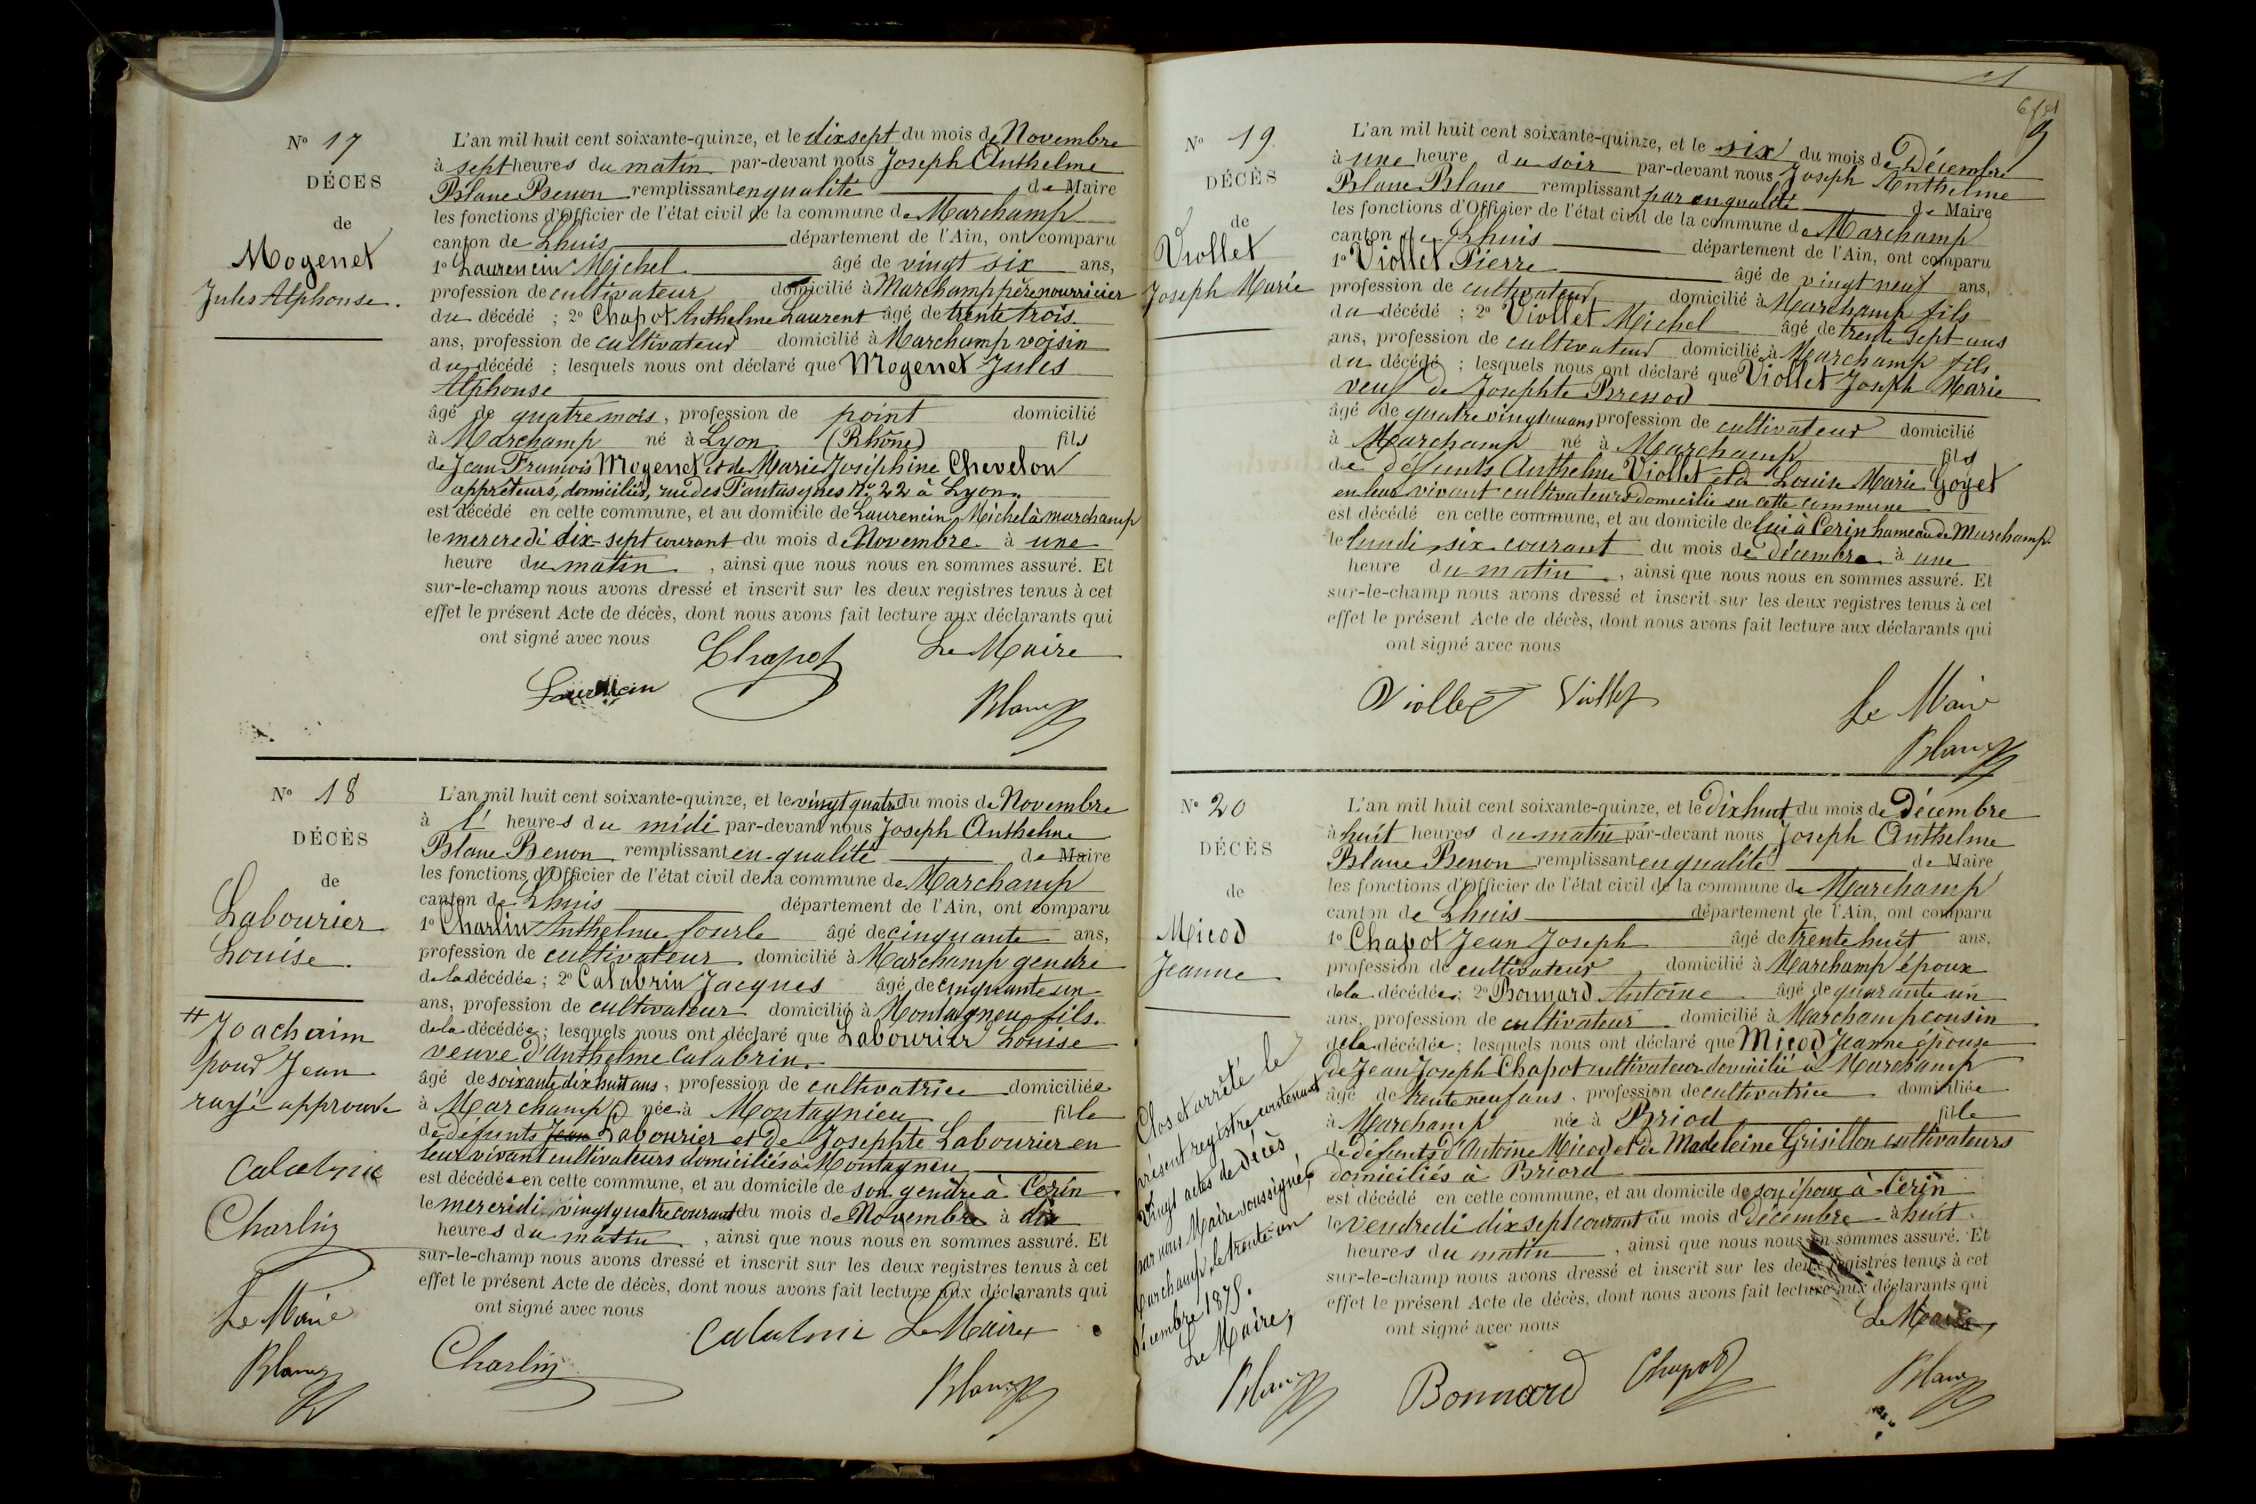 N° 17
DÉCES
de
Mogenet
Jules Alphonse.
L'an mil huit cent soixante-quinze, et le dix sept du mois de Novembre
à sept heures du matin par-devant nous Joseph Anthelme
Blanc Benon remplissant en qualité de Maire
les fonctions d'Officier de l'état civil de la commune de Marchamp
canton de Lhuis département de l'Ain, ont comparu
1° Laurencin Michel âgé de vingt six ans,
profession de cultivateur domicilié à Marchamp père nourricier
du décédé ; 2° Chapot Anthelme Laurent âgé de trente trois
ans, profession de cultivateur domicilié à Marchamp voisin
du décédé ; lesquels nous ont déclaré que Mogenet Jules
Alphonse
âgé de quatre mois, profession de point domicilié
à Marchamp né à Lyon (Rhône) fils
de Jean François Mogenet et de Marie Joséphine Chevelon
apprêteurs, domiciliés, rue des Fantasques N° 22 à Lyon.
est décédé en cette commune, et au domicile de Laurencin Michel à marchamp
le mercredi dix-sept courant du mois de Novembre à une
heure du matin, ainsi que nous nous en sommes assuré. Et
sur-le-champ nous avons dressé et inscrit sur les deux registres tenus à cet
effet le présent Acte de décès, dont nous avons fait lecture aux déclarants qui
ont signé avec nous
Chapot Le Maire
Laurencin
Blanc
N° 18
DÉCÈS
de
Labourier
Louise.
# Joachaim
pour Jean
rayé approuvé
Calabrin
Charlin
Le Maire
Blanc
L'an mil huit cent soixante-quinze, et le vingt quatre du mois de Novembre
à l' heures du midi par-devant nous Joseph Anthelme
Blanc Benon remplissant en qualité de Maire
les fonctions d'Officier de l'état civil de la commune de Marchamp
canton de Lhuis département de l'Ain, ont comparu
1° Charlin Anthelme âgé de cinquante ans,
profession de cultivateur domicilié à Marchamp gendre
de la décédée ; 2° Calabrin Jacques âgé de cinquante un
ans, profession de cultivateur domicilié à Montagneu fils.
de la décédée ; lesquels nous ont déclaré que Labourier Louise
veuve d'Anthelme Calabrin.
âgé de soixante dix huit ans, profession de cultivatrice domiciliée
à Marchamp née à Montagnieu fille
de défunts Jean Labourier et de Josephte Labourier en
leur vivant cultivateurs domiciliés à Montagneu
est décédée en cette commune, et au domicile de son gendre à Cerin
le mercridi vingt quatre courant du mois de Novembre à dix
heures du matin, ainsi que nous nous en sommes assuré. Et
sur-le-champ nous avons dressé et inscrit sur les deux registres tenus à cet
effet le présent Acte de décès, dont nous avons fait lecture aux déclarants qui
ont signé avec nous
Calabrin Le Maire
Charlin
Blanc
9
N° 19.
DÉCÈS
de
Viollet
Joseph Marie
L'an mil huit cent soixante-quinze, et le six du mois de Décembre
à une heure du soir par-devant nous Joseph Anthelme
Blanc Blanc remplissant par en qualité de Maire
les fonctions d'Officier de l'état civil de la commune de Marchamp
canton de Lhuis département de l'Ain, ont comparu
1° Viollet Pierre âgé de vingt neuf ans,
profession de cultivateur domicilié à Marchamp fils
du décédé ; 2° Viollet Michel âgé de trente sept ans
ans, profession de cultivateur domicilié à Marchamp fils
du décédé ; lesquels nous ont déclaré que Viollet Joseph Marie
veuf de Josephte Bressod
âgé de quatre vingt un ans profession de cultivateur domicilié
à Marchamp né à Marchamp fils
de défunts Anthelme Viollet et de Louise Marie Goyet
en leur vivant cultivateurs domicilié en cette commune
est décédé en cette commune, et au domicile de lui à Cerin hameau de Marchamp.
le lundi six courant du mois de décembre à une
heure du matin, ainsi que nous nous en sommes assuré. Et
sur-le-champ nous avons dressé et inscrit sur les deux registres tenus à cet
effet le présent Acte de décès, dont nous avons fait lecture aux déclarants qui
ont signé avec nous
Viollet Viollet Le Maire
Blanc
N° 20
DÉCÈS
de
Micod
Jeanne
L'an mil huit cent soixante-quinze, et le Dix huit du mois de Décembre
à huit heures du matin par-devant nous Joseph Anthelme
Blanc Benon remplissant en qualité de Maire
les fonctions d'Officier de l'état civil de la commune de Marchamp
canton de Lhuis département de l'Ain, ont comparu
1° Chapot Jean Joseph âgé de trente huit ans,
profession de cultivateur domicilié à Marchamp époux
de la décédée ; 2° Bonnard Antoine âgé de quarante un
ans, profession de cultivateur domicilié à Marchamp cousin
de la décédée ; lesquels nous ont déclaré que Micod Jeanne épouse
de Jean Joseph Chapot cultivateur domicilié à Marchamp
âgé de trente neuf ans, profession de cultivatrice domiciliée
à Marchamp née à Briod fille
de défunts d'Antoine Micod et de Madeleine Grisillon cultivateurs
domiciliés à Briord
est décédé en cette commune, et au domicile de son époux à Cerin
le vendredi dix sept courant du mois d décembre à huit
heures du matin, ainsi que nous nous en sommes assuré. Et
sur-le-champ nous avons dressé et inscrit sur les deux registres tenus à cet
effet le présent Acte de décès, dont nous avons fait lecture aux déclarants qui
ont signé avec nous
Le Maire
Bonnard Chapot Blanc
Clos et arrêté le
présent registre contenant
vingt actes de décès,
par nous Maire soussigné,
Marchamp, le trente-un
Décembre 1875.
Le Maire,
Blanc